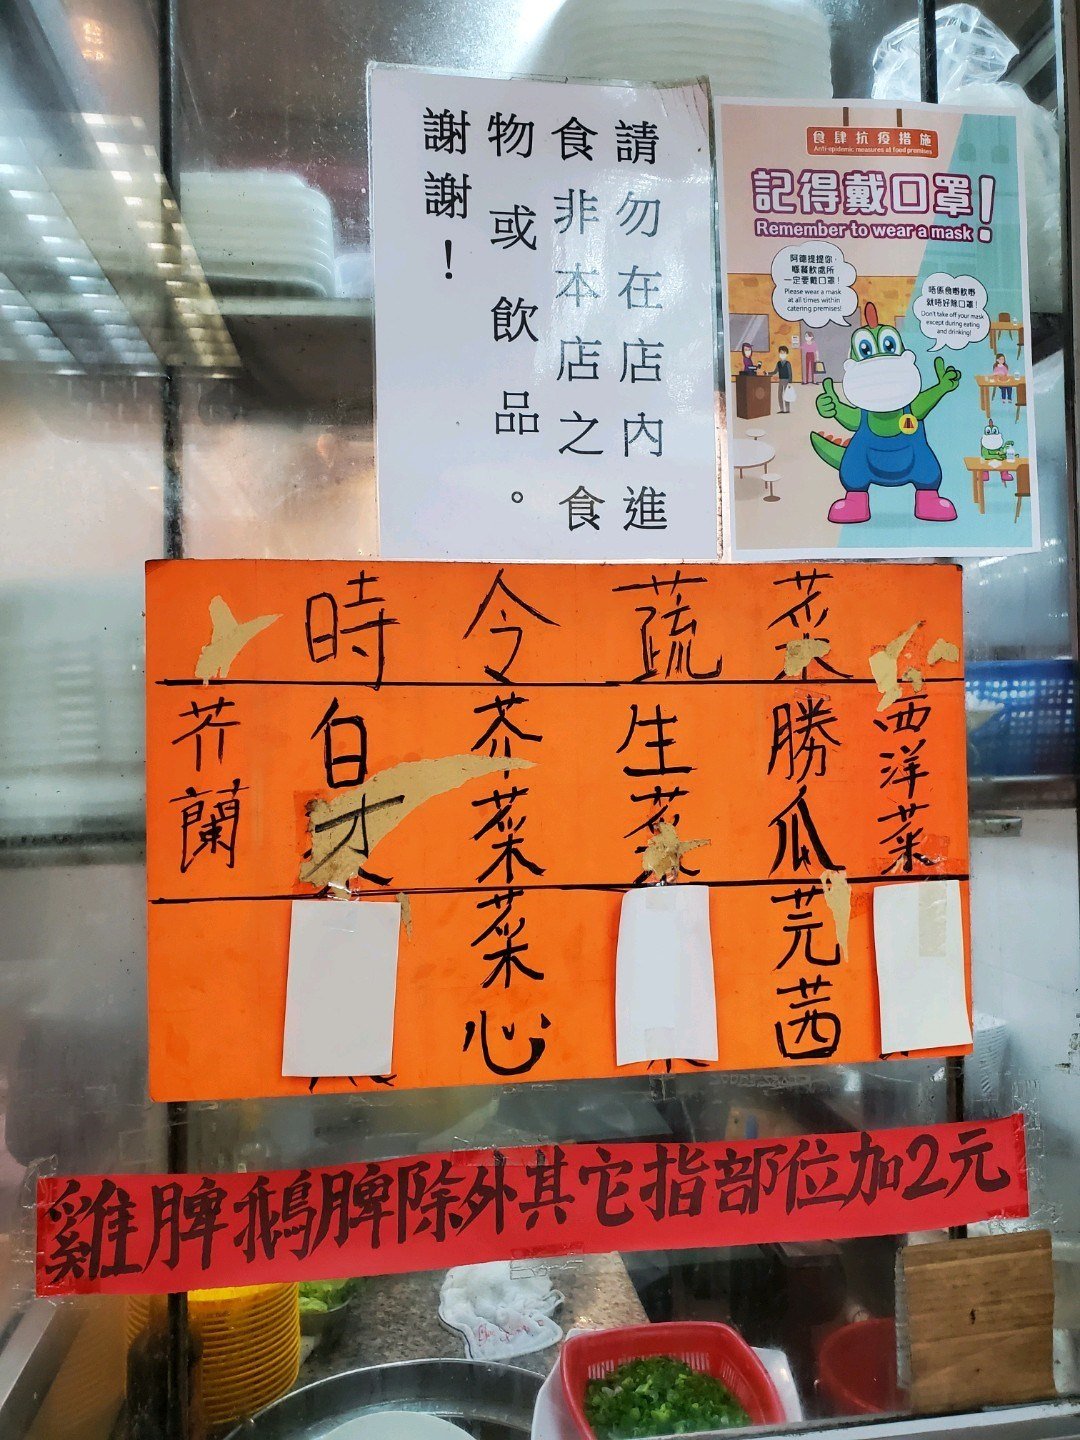 請勿在店內進
食非本店之食
物或飲品。
謝謝！
食肆抗疫措施
Anti-epidemic measures at food premises
記得戴口罩！
Remember to wear a mask!
阿德提提你，
喺餐飲處所
一定要戴口罩！
Please wear a mask
at all times within
catering premises!
唔係食嘢飲嘢
就唔好除口罩！
Don't take off your mask
except during eating
and drinking!
時令蔬菜
西洋菜
勝瓜
芫茜
生菜
芥菜
菜心
白菜
芥蘭
雞脾鵝脾除外其它指部位加2元